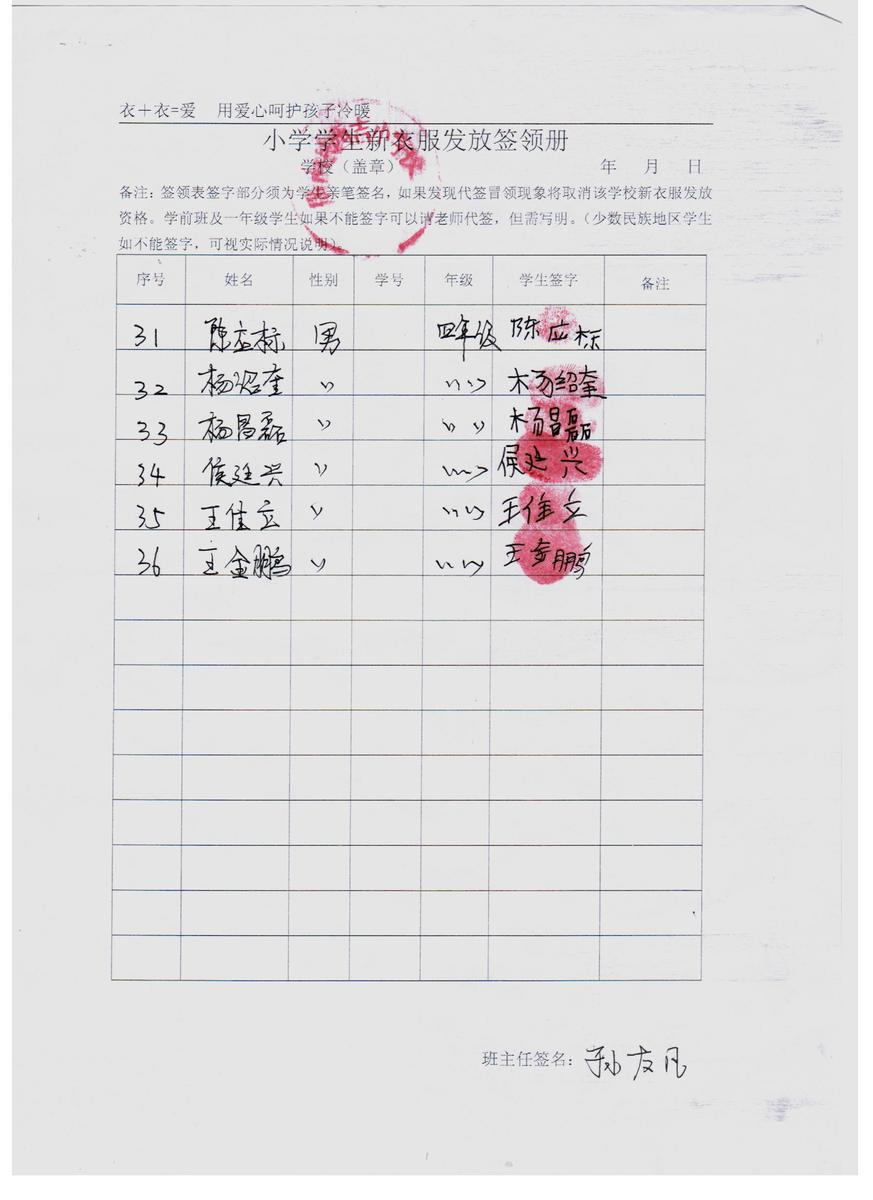 衣＋衣=爱　用爱心呵护孩子冷暖
小学学生新衣服发放签领册
学校（盖章）　年　月　日
备注：签领表签字部分须为学生亲笔签名，如果发现代签冒领现象将取消该学校新衣服发放
资格。学前班及一年级学生如果不能签字可以请老师代签，但需写明。（少数民族地区学生
如不能签字，可视实际情况说明）。
序号 姓名 性别 学号 年级 学生签字 备注
31 陈应标 男 四年级 陈应标
32 杨绍奎 〃 〃〃 杨绍奎
33 杨昌磊 〃 〃〃 杨昌磊
34 侯廷兴 〃 〃〃 侯廷兴
35 王佳立 〃 〃〃 王佳立
36 王金鹏 〃 〃〃 王金鹏
班主任签名：孙友凡